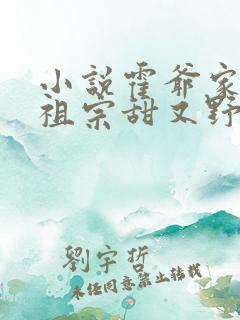 小説霍爺家
祖宗甜又野
劉宇哲
未經同意禁止轉載